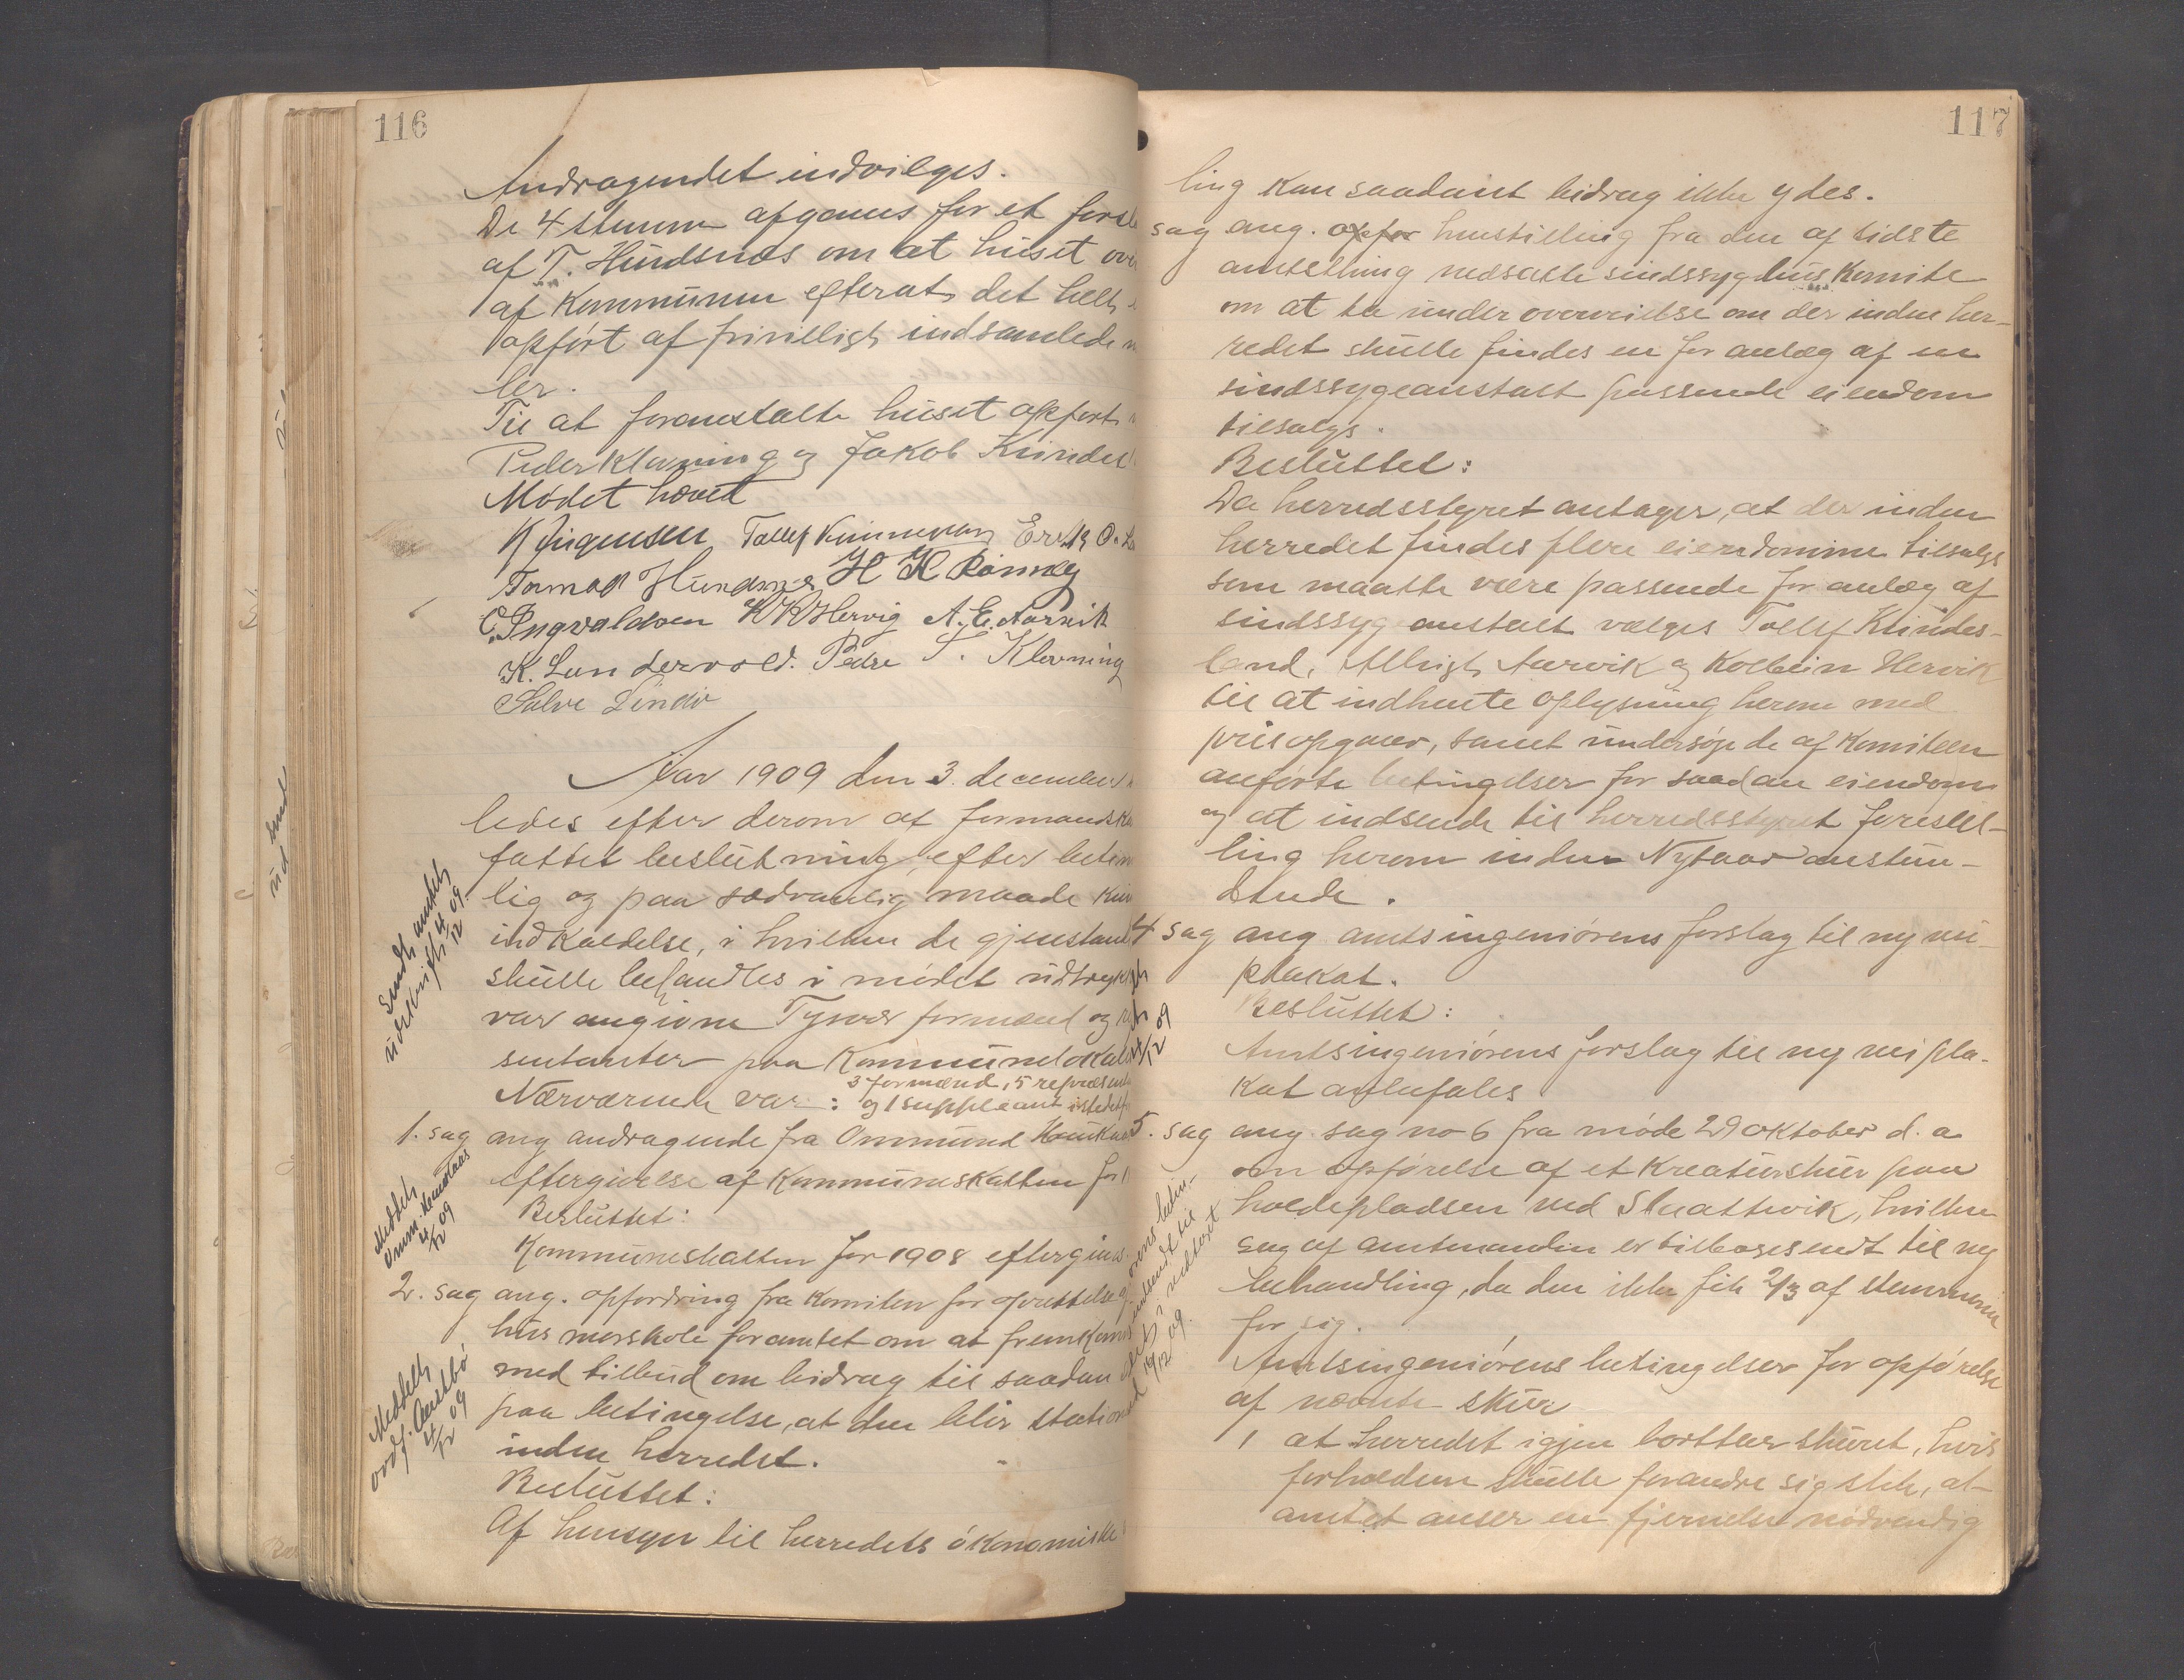 116
Andragendet indvilges.
De 4 stemmer afgaves for et forsl
af T. Hundsnes om at huset ov
af Kommunen efterat det helt
opført af frivilligt indsamlede
ler.
Til at foranstalte huset opført
Peder Klovning og Jakob Kindes
Mødet hævet
K Jørgensen Tollef Kinnesland Erik O.
Tormod Hundsnes H H Rønnevig
C. Ingvaldsen K K Hervig A. E. Aarvik
K. Lundervold. Peder T. Klovning
Salve Lindø
Aar 1909 den 3. december
ledes efter derom af formandsk
fattet beslutning, efter betim
lig og paa sædvanlig maade kun
indkaldelse, i hvilken de gjenstand
skulle behandles i mødet udtryk
var angivne Tysvær formænd og
sentanter paa Kommunelokal
Nærværende var: 3 formænd, 5 repræsent
og 1 suppleant istedetf
Sendt amtet
udskrift 4/12 09
1. sag ang andragende fra Ommund Haukaa
eftergivelse af Kommuneskatten for 1
Besluttet:
Kommuneskatten for 1908 eftergives.
Meddelt
Omm. Haukaas
4/12 09
2. sag ang. opfordring fra Komiteen for oprettelse af
husmorskole for amtet om at fremkom
med tilbud om bidrag til saadan
paa betingelse, at den blir station
inden herredet.
Besluttet:
Meddelt
ordf.
4/12 09
Af hensyn til herredets økonomiske
117
ling kan saadant bidrag ikke ydes.
sag ang. henstilling fra den af sidste
amtsthing nedsatte sindssyghus Komite
om at ta under overveielse om der inden her-
redet skulle findes en for anlæg af en
sindssygeanstalt passende eiendom
tilsalgs.
Besluttet:
Da herredsstyret antager, at der inden
herredet findes flere eiendomme tilsalgs
som maatte være passende for anlæg af
sindssyganstalt vælges Tollef Kindes-
land, Albrigt Aarvik og Kolbein Hervik
til at indhente oplysning herom med
prisopgaver, samt undersøge de af Komiteen
anførte betingelser for saadan eiendom
og at indsende til herredsstyret forestil-
ling herom inden Nytaar anstun-
dende.
4 sag ang amtsingeniørens forslag til ny vei-
plakat.
Besluttet:
Amtsingeniørens forslag til ny veipla-
kat anbefales
4/12 09
5. sag ang. sag no 6 fra møde 29 oktober d. a
om opførelse af et Kreaturskur paa
holdepladsen ved Skattevik, hvilken
sag af amtmanden er tilbagesendt til ny
behandling, da den ikke fik 2/3 af stemmerne
for sig.
Amtsingeniørens betingelser for opførelse
af nævnte skur
1 at herredet igjen borttar skuret, hvis
forholdene skulle forandre sig slik, at
amtet anser en fjernelse nødvendig